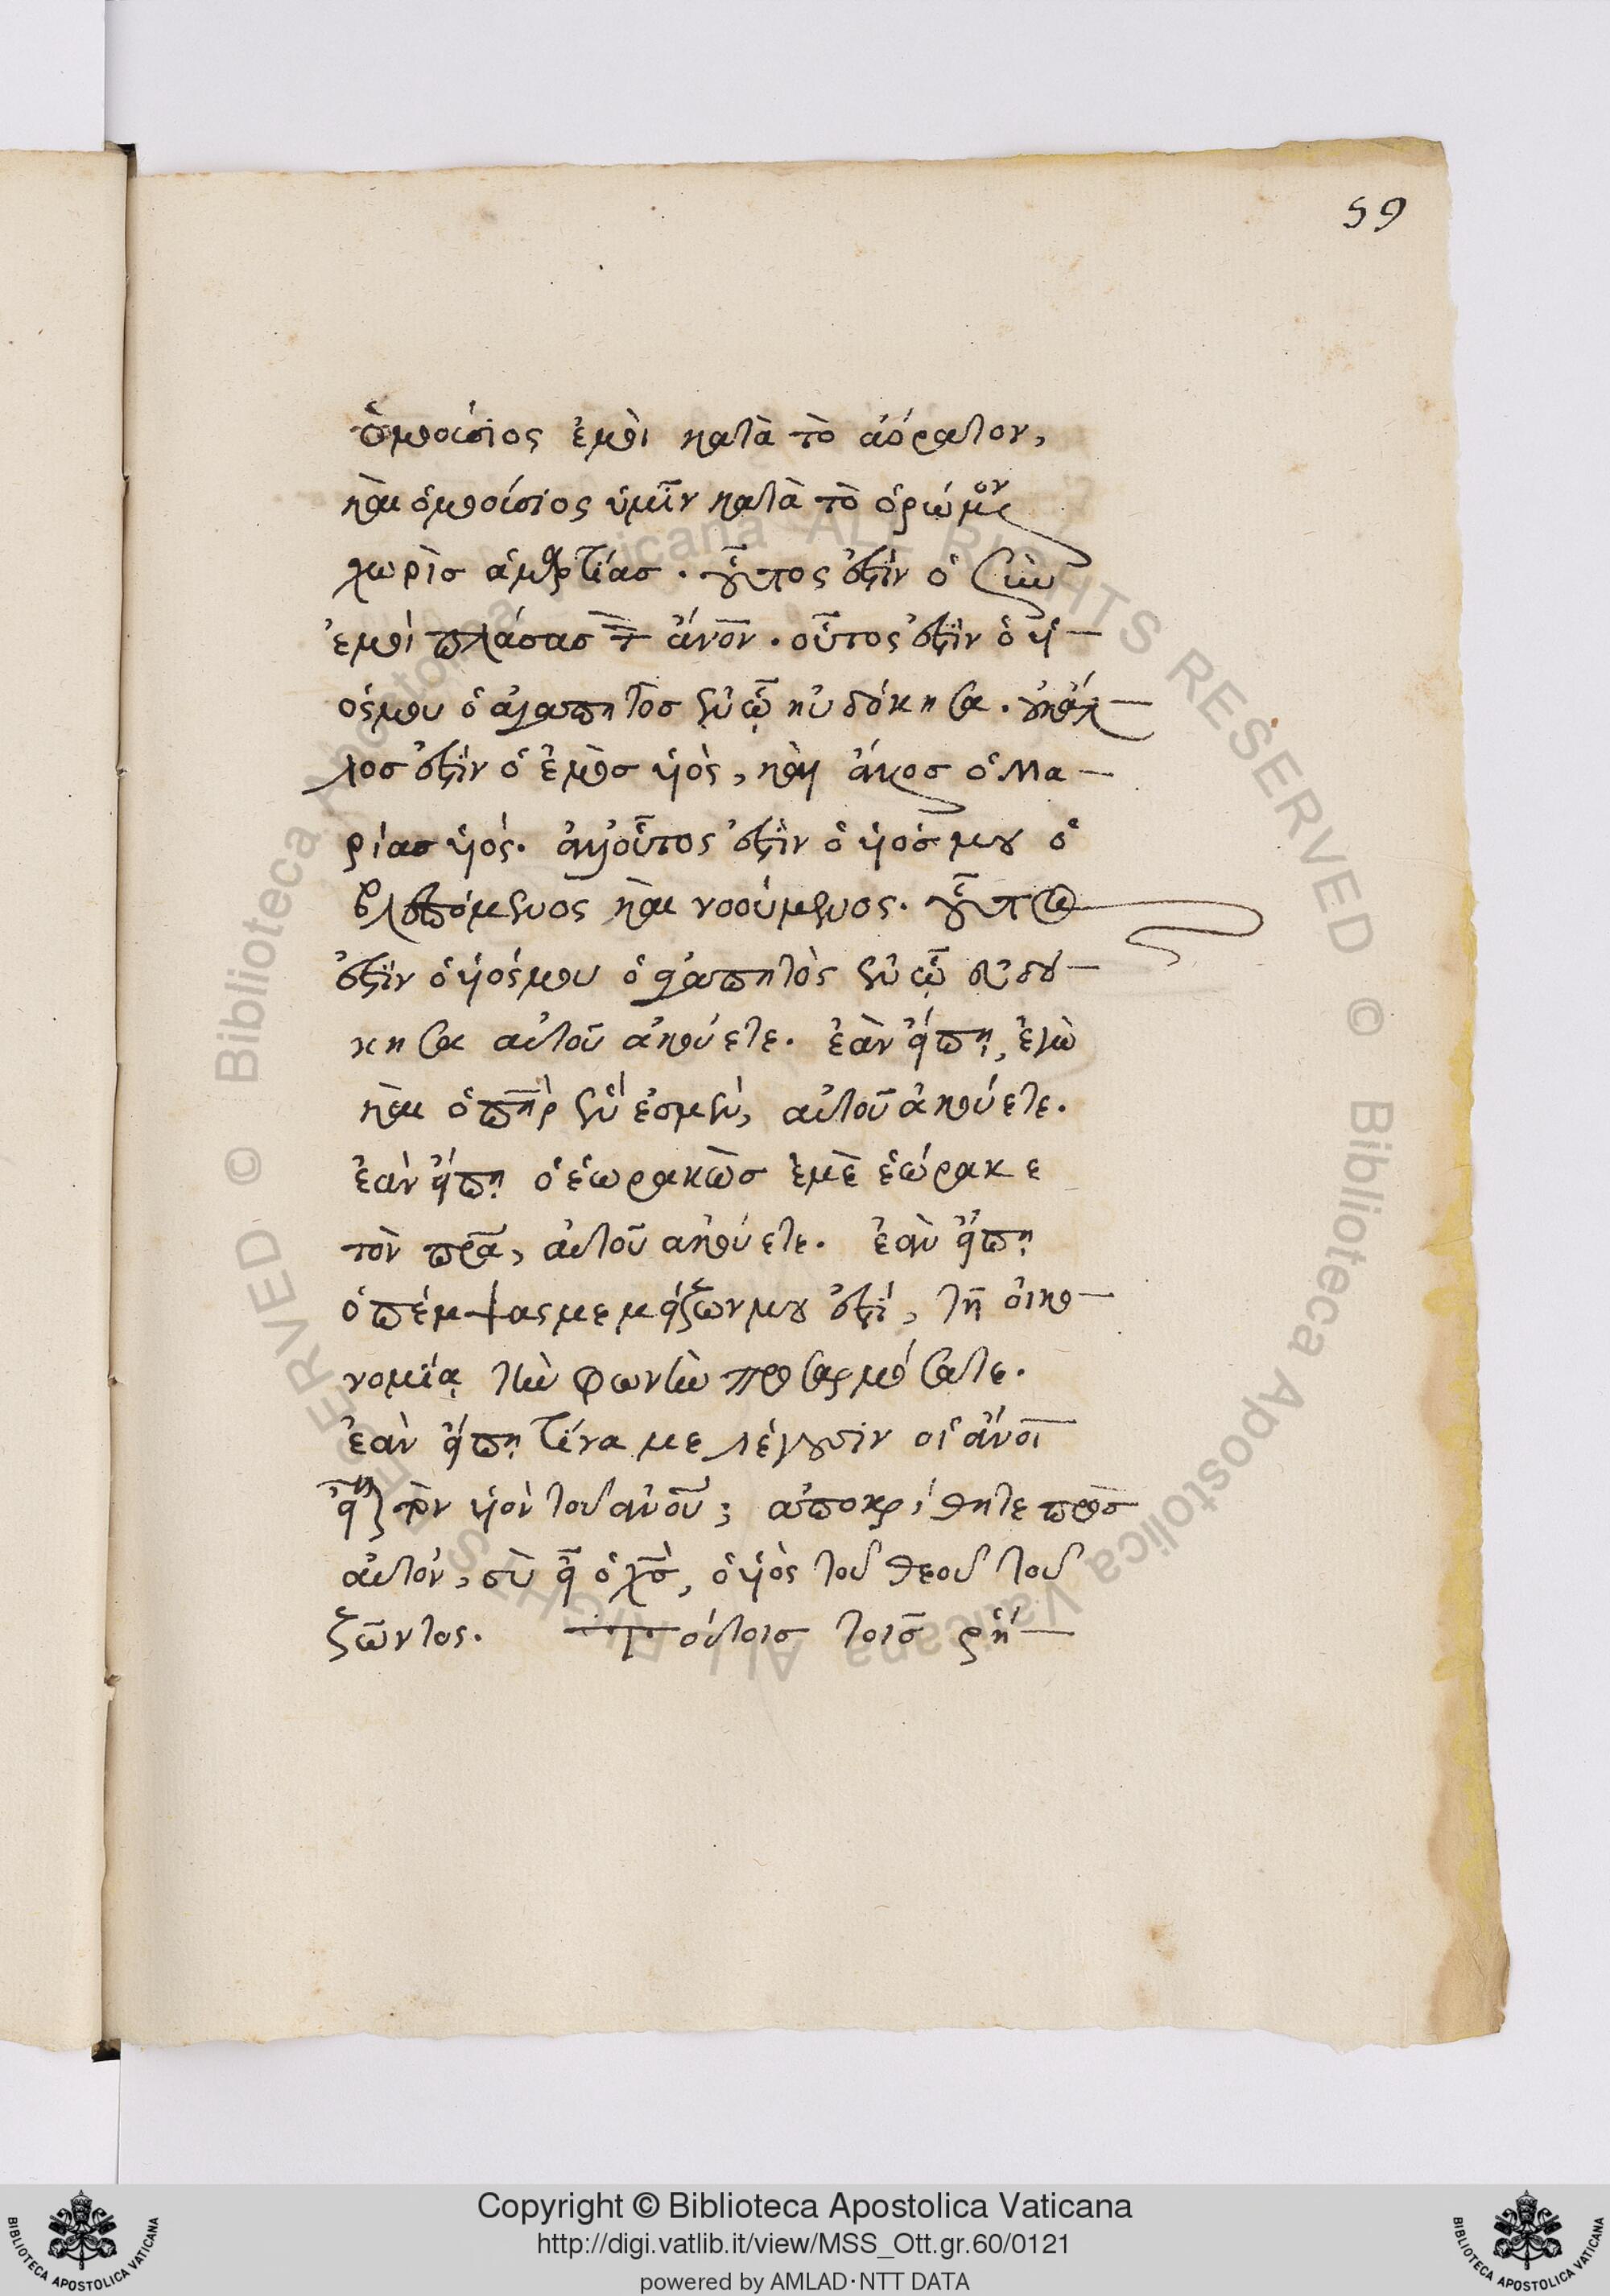 59
ὁμοούσιος ἐμοὶ κατὰ τὸ ἀόρατον,
καὶ ὁμοούσιος ὑμῖν κατὰ τὸ ὁρώμενον
χωρὶσ ἁμαρτίασ. οὗτος ἐστὶν ὁ σὺν
ἐμοὶ πλάσασ τὸν ἄνον. οὗτος ἐστὶν ὁ υἱ-
όςμου ὁ ἀγαπητὸσ ἐν ᾧ ηὐδόκησα. οὐκ ἄλ-
λοσ ἐστὶν ὁ ἐμὸσ υἱὸς, καὶ ἄλλος ὁ Μα-
ρίασ υἱός. ἀλλ' οὗτος ἐστὶν ὁ υἱόσ μου ὁ
βλεπόμενος καὶ νοούμενος. οὗτος
ἐστὶν ὁ υἱόςμου ὁ ἀγαπητὸς ἐν ᾧ εὐδό-
κησα αὐτοῦ ἀκούετε. ἐὰν εἴπῃ, ἐγὼ
καὶ ὁ πηρ ἕν ἐσμεν, αὐτοῦ ἀκούετε.
ἐὰν εἴπῃ ὁ ἑωρακὼσ ἐμὲ ἑώρακε
τὸν πρα, αὐτοῦ ἀκούετε. ἐὰν εἴπῃ
ὁ πέμψας με μείζων μου ἐστί, τῇ οἰκο-
νομίᾳ τὴν φωνὴν προσαρμόσατε.
ἐὰν εἴπῃ τίνα με λέγουσιν οἱ ἄνοι
εἶναι τὸν υἱὸν τοῦ ἀνου; ἀποκρίθητε πρὸσ
αὐτόν, σὺ εἶ ὁ χσ, ὁ υἱὸς τοῦ θεοῦ τοῦ
ζῶντος. τούτοισ τοῖσ ῥή-
Copyright © Biblioteca Apostolica Vaticana
http://digi.vatlib.it/view/MSS_Ott.gr.60/0121
powered by AMLAD·NTT DATA
© Biblioteca Apostolica Vaticana ALL RIGHTS RESERVED
© Biblioteca Apostolica Vaticana ALL RIGHTS RESERVED
BIBLIOTECA APOSTOLICA VATICANA
BIBLIOTECA APOSTOLICA VATICANA